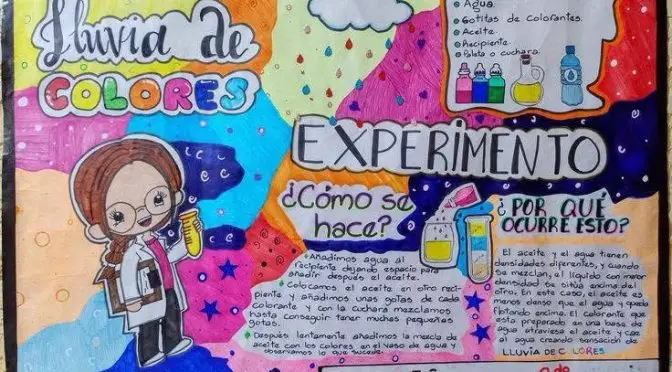 Lluvia de
COLORES
Agua
Gotitas de Colorantes.
Aceite
Recipiente
Paleta o cuchara.
EXPERIMENTO
¿Cómo se
hace?
Añadimos agua al
recipiente dejando espacio para
añadir después el aceite.
Colocamos el aceite en otro reci-
piente y añadimos unas gotas de cada
colorante y con la cuchara mezclamos
hasta conseguir tener muchas pequeñas
gotas.
Después lentamente añadimos la mezcla de
aceite con los colores en el vaso de agua y
observamos lo que sucede.
¿POR QUÉ
OCURRE ESTO?
El aceite y el agua tienen
densidades diferentes, y cuando
se mezclan, el líquido con menor
densidad se sitúa encima del
otro. En este caso, el aceite es
menos denso que el agua y queda
flotando encima. El colorante que
esta preparado en una base de
agua atraviesa el aceite y cae
al agua creando sensación de
LLUVIA DE COLORES